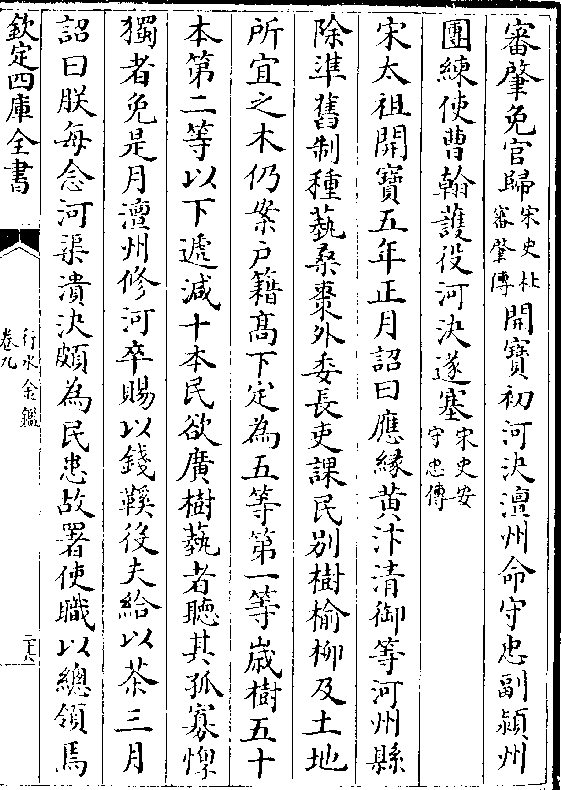 審肇免官歸宋史杜審肇傳開寶初河決澶州命守忠副潁州
團練使曹翰護役河決遂塞宋史安守忠傳
宋太祖開寶五年正月詔曰應緣黄汴清御等河州縣
除準舊制種藝桑棗外委長吏課民别樹榆柳及土地
所宜之木仍案户籍髙下定為五等第一等歲樹五十
本第二等以下遞減十本民欲廣樹藝者聽其孤寡惸
獨者免是月澶州修河卒賜以錢鞵役夫給以茶三月
詔曰朕每念河渠潰決頗為民患故署使職以總領焉
欽定四庫全書
行水金鑑
卷九